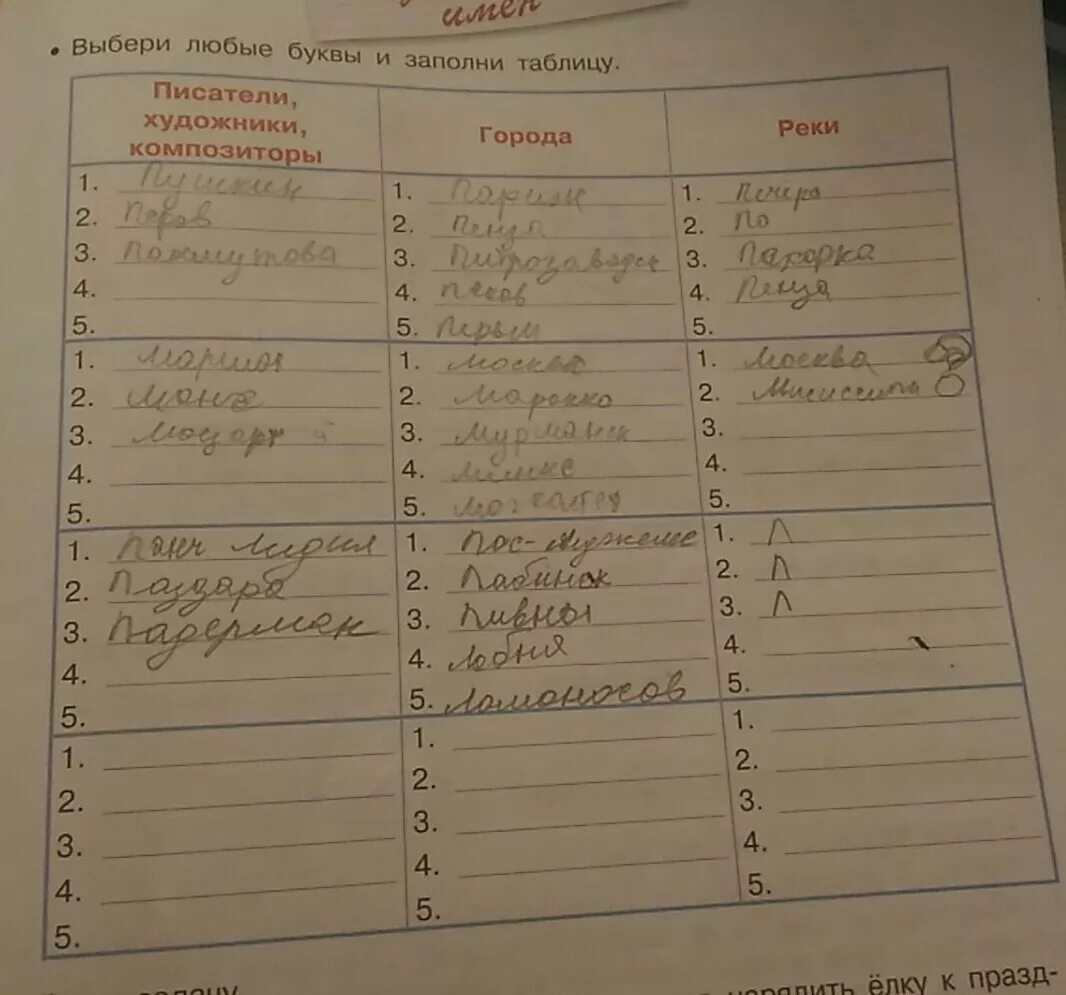 имён
• Выбери любые буквы и заполни таблицу.
Писатели, художники, композиторы
Города
Реки
1. Пушкин
2. Перов
3. Пахмутова
4.
5.
1. Париж
2. Пенза
3. Питрозаводск
4. Псков
5. Перьм
1. Печера
2. По
3. Пахорка
4. Пенза
5.
1. Маршак
2. Моне
3. Моцарт
4.
5.
1. Москва
2. Марокко
3. Мурманск
4.
5.
1. Москва
2. Мисиссипи
3.
4.
5.
1. Лидия
2.
3.
4.
5.
1. Лос-Анджелес
2. Лабинск
3. Ливны
4. Лобня
5. Ломоносов
1. Л
2. Л
3. Л
4.
5.
1.
2.
3.
4.
5.
1.
2.
3.
4.
5.
1.
2.
3.
4.
5.
ёлку к празд-